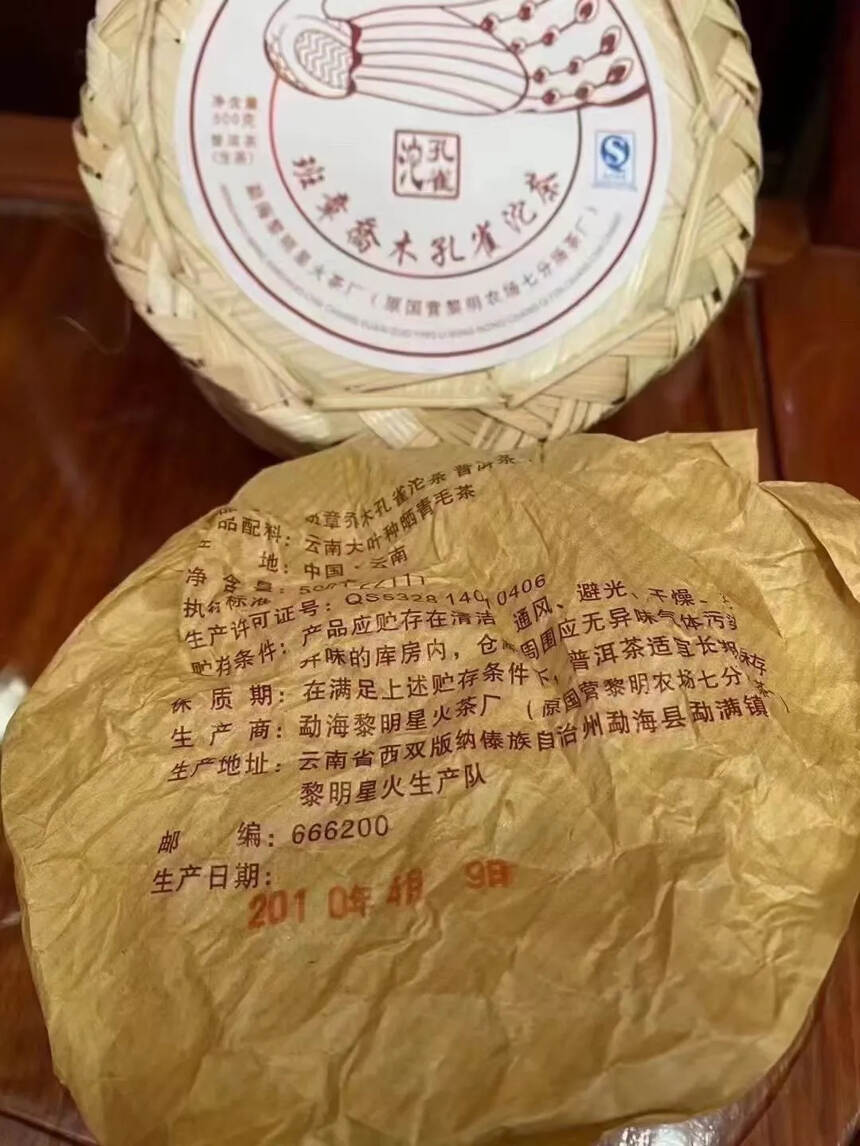 净含量
500克
普洱茶
(生茶)
孔雀
沱
班章喬木孔雀沱茶
勐海黎明星火茶厂(原国营黎明农场七分场茶厂)
班章乔木孔雀沱茶 普洱茶
品配料：云南大叶种晒青毛茶
地：中国·云南
净 含量：
执行标准
生产许可证号：QS5328 1401 0406
贮存条件：产品应贮存在清洁 通风、避光、干燥、
异味的库房内，仓 周围应无异味气体污染
保 质 期：在满足上述贮存条件下，普洱茶适宜长期保存
生 产 商：勐海黎明星火茶厂 (原国营黎明农场七分 茶
生产地址：云南省西双版纳傣族自治州勐海县勐满镇
黎明星火生产队
邮 编：666200
生产日期：
2010年4月 9日